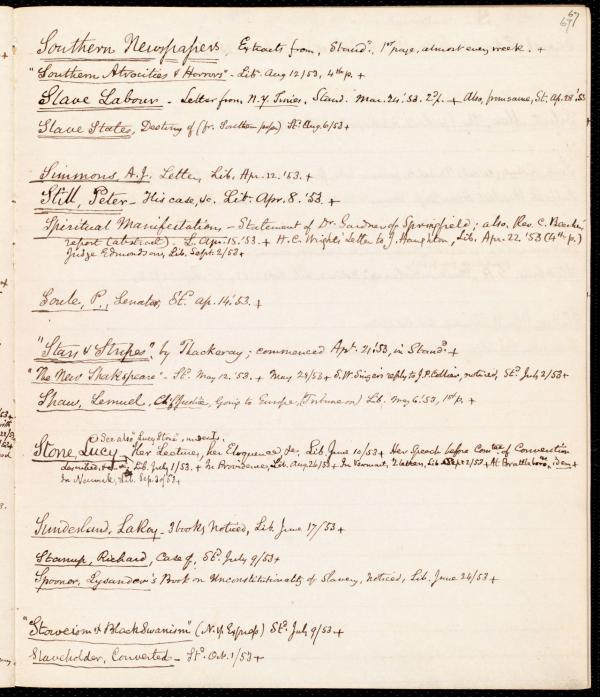 67
67
Southern Newspapers, Extracts from, Standd. 1st page, almost every week. +
"Southern Atrocities & Horrors" - Lib. Aug 12/53, 4th p. +
Slave Labour - Letter from N.Y. Times, Stand. Mar. 24. '53. 2d p. + Also, from same, St. Ap. 28. '53
Slave States, Destiny of (fr. Southern paper) Std. Aug. 6/53 +
Simmons, A.J. Letter, Lib. Apr. 12. '53. +
Still, Peter - His case, &c. Lib. Apr. 8. '53. +
Spiritual Manifestations - Statement of Dr. Gardner of Springfield; also, Rev. C. Beecher,
report (abstract) - L. Apr. 15. '53. + H.C. Wright's Letter to J. Haughton, Lib. Apr. 22 '53 (4th p.)
Judge Edmondson, Lib. Sept. 2/53 +
Soule, P., Senator, Std. Ap. 14. '53. +
"Stars & Stripes", by Thackeray; commenced Apl. 21. '53, in Standd. +
"The New Shakspeare" - St. May 12. '53. + May 28/53 + S.W. Singer's reply to J.P. Collier, noticed, Std. July 2/53 +
Shaw, Lemuel, Ch. Justice, Going to Europe, (Tribune on) Lib. May 6. '53, 1st p. +
See also "Lucy Stone", under L.
Stone, Lucy - Her Lectures, her Eloquence, &c. Lib. June 10/53 + Her Speech before Comtee. of Convention
Lib. July 1/53. + In Providence, Lib. Aug 26/53 + In Vermont, Lib. Sept 2/53 + At Brattleboro, idem +
In Newark, Lib. Sep. 30/53 +
Sunderland, LaRoy - 3 books, Noticed, Lib. June 17/53 +
Stanup, Richard, Case of, Std. July 9/53 +
Spooner, Lysander's Book on Unconstitutionality of Slavery, noticed, Lib. June 24/53 +
"Stoweism & Black Swanism" (N.Y. Express) Std. July 9/53. +
Slaveholder, Converted - Std. Oct. 1/53 +